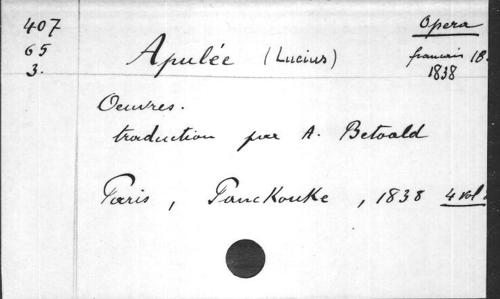 407
65
3.
Apulée (Lucius)
Opera
français 18
1838
Oeuvres.
traduction par A. Betoald
Paris, Panckouke, 1838 4 vol